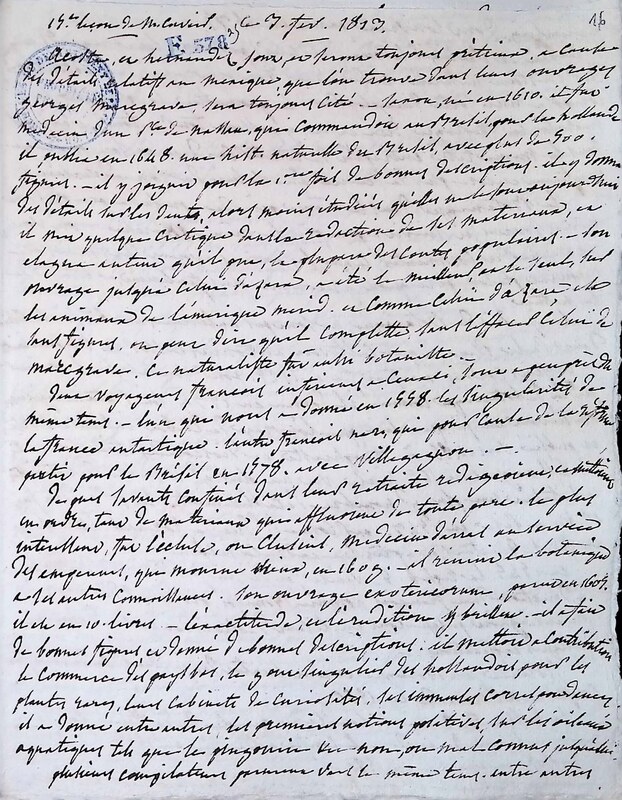 15.e leçon de M. Cuvier. ce 3. fev. 1813. 16
F. 578
acosta, et hernandez, sont et seront toujours prétieux, a cause
des détails relatifs au mexique, que l'on trouve dans leurs ouvrages
georges marcgrave, sera toujours cité. — saxon, né en 1610. il fut
medecin d'un P.ce de nassau, qui commandoit au Bresil pour la hollande
il publia en 1648. une hist. naturelle du Bresil, avec plus de 500.
figures. — il y joignit pour la 1.ere fois de bonnes descriptions. il y donna
des détails sur les dents, alors moins étudiés qu'elles ne le sont aujourd'hui
il mit quelque critique dans la rédaction de ses materiaux, et
chaque auteur qu'il que, la plupart des contes populaires — son
ouvrage jusqu'à celui d'azara, a été le meilleur et le seul, sur
les animaux de l'amerique merid. et comme celui d'azara, est
sans figures, on peut dire qu'il complette, sans l'effacer celui de
marcgrave. Ce naturaliste fut aussi botaniste. —
Deux voyageurs francois inferieurs a ceux ci, sont a peu près du
même tems. — l'un qui nous a donné en 1558. les singularités de
la france antartique. l'autre francois que pour cause de la
partit pour le Brésil en 1578. avec Villegagnon. —
De quels savants confinés dans leur retraite redigeoient, et mettoient
en ordre, tant de materiaux qui affluoient de toute part. le plus
interessant, fut l'écluse, ou Clusius, medecin d'arras au service
des empereurs, qui mourut vieux, en 1609. — il reunit la botanique
a ses autres connoissances. son ouvrage exoticorum, parut en 1605.
il est en 10. livres. — l'exactitude, et l'érudition y brillent. — il a peu
de bonnes figures et donné de bonnes descriptions. il mettoit a contribution
le commerce des pays bas, le gout singulier des hollandois pour les
plantes rares, leurs cabinets de curiosités, ses immenses correspondances
il a donné entre autres, les premieres notions positives, sur les oiseaux
aquatiques tels que le pingouin ou non, ou mal connus jusques
plusieurs compilateurs parurent dans le même tems. entre autres